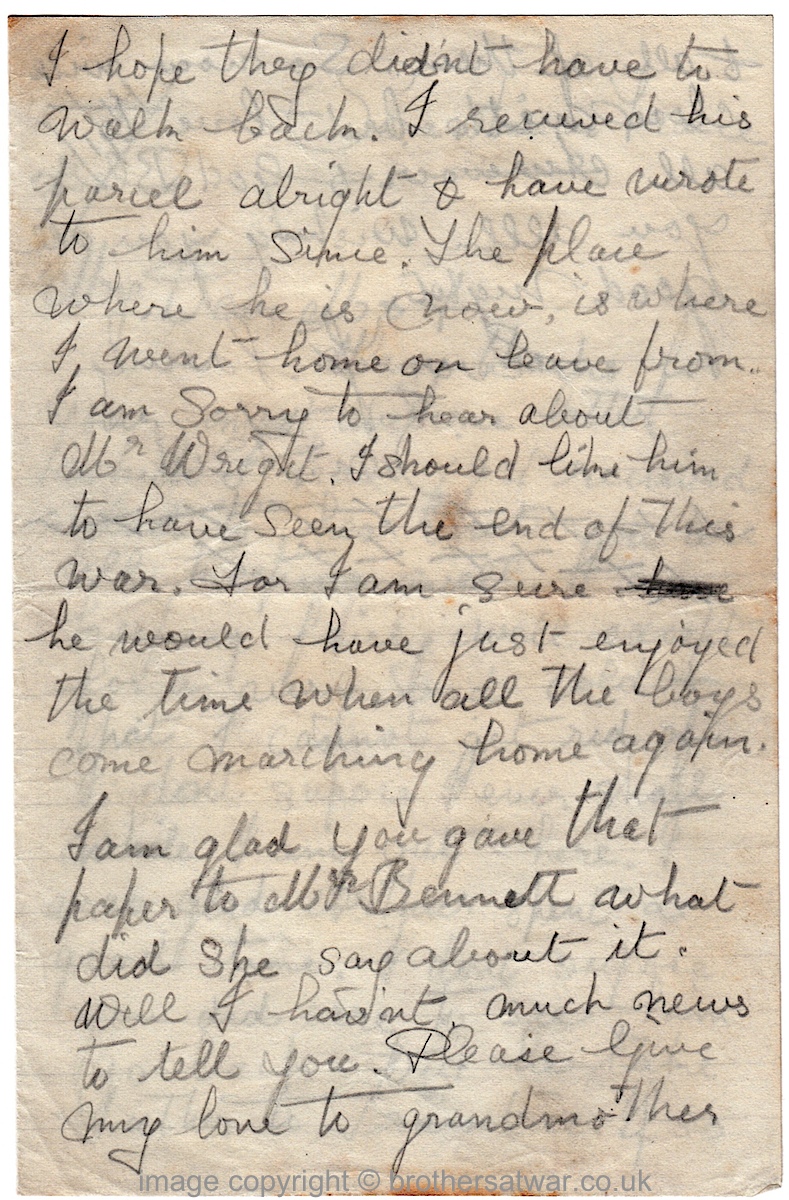 I hope they didn't have to
walk back. I received his
parcel alright & have wrote
to him since. The place
where he is now, is where
I went home on leave from.
I am Sorry to hear about
Mr Wright. I should like him
to have seen the end of this
war. For I am sure
he would have just enjoyed
the time when all the boys
come marching home again.
I am glad you gave that
paper to Mrs Bennett what
did she say about it.
Well I hav'nt much news
to tell you. Please Give
my love to grandmother
image copyright © brothersatwar.co.uk